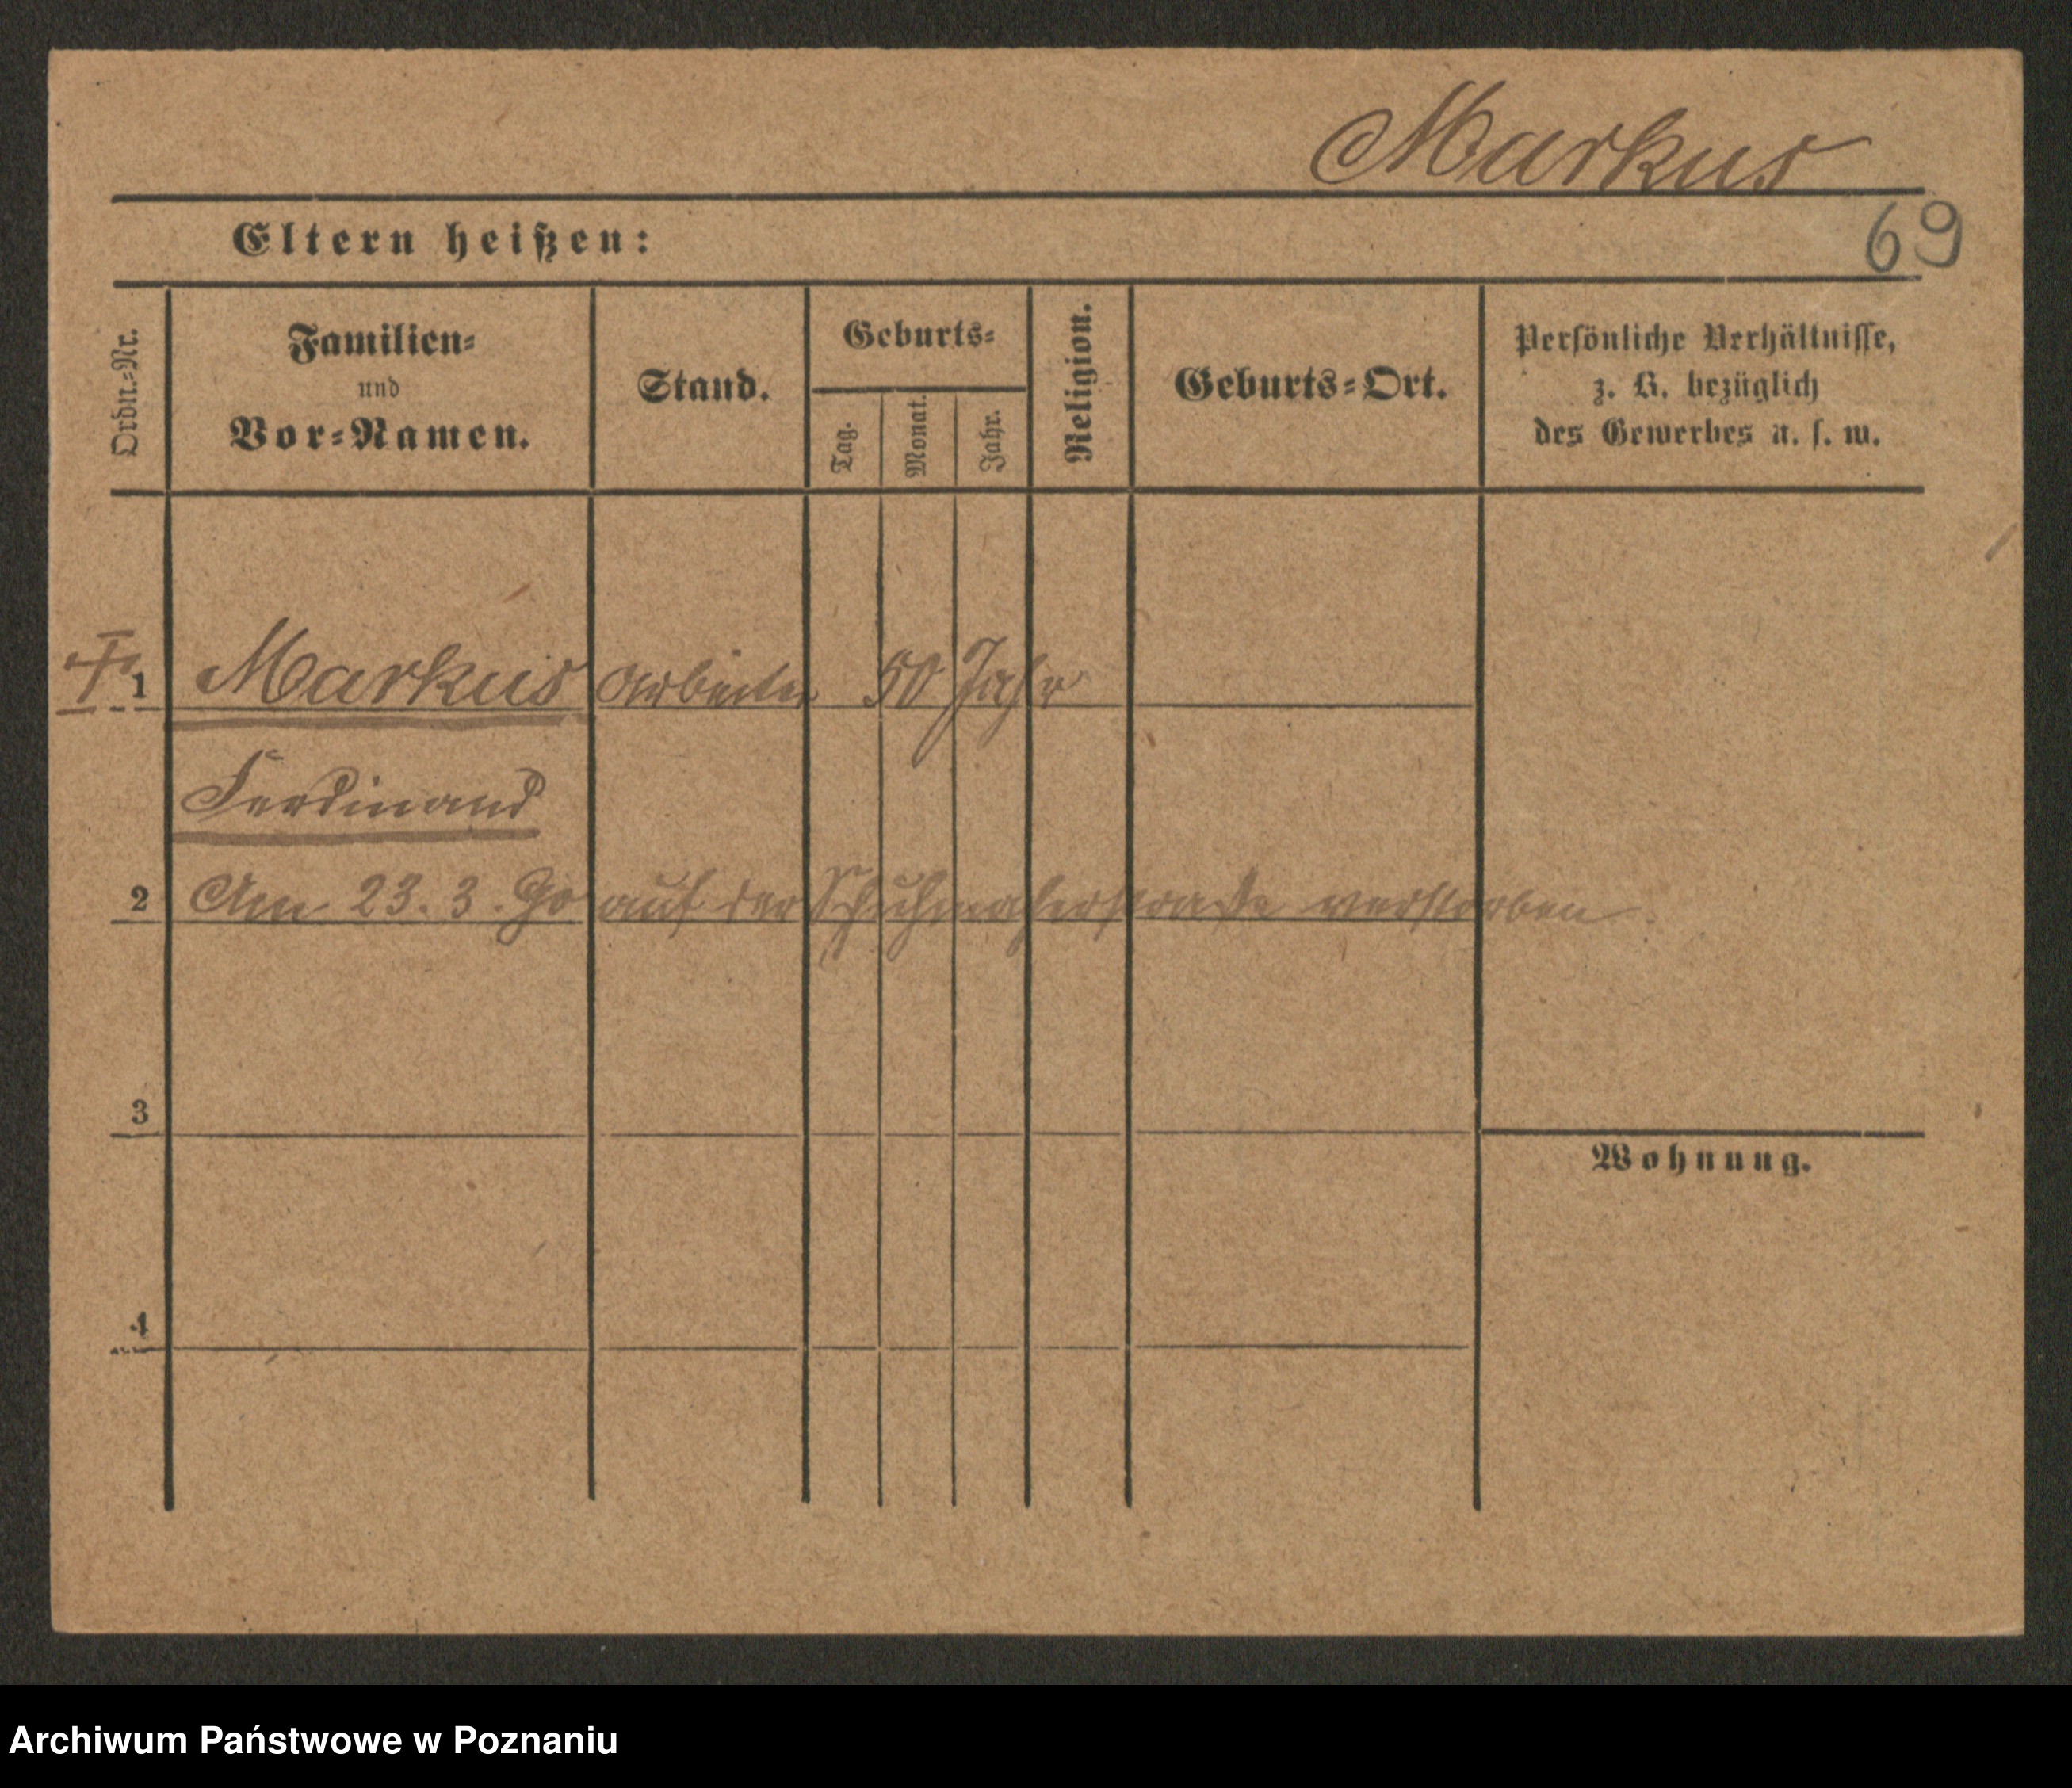 Markus
69
Eltern heißen:
Ordn.-Nr.
Familien-
und
Vor-Namen.
Stand.
Geburts-
Tag.
Monat.
Jahr.
Religion.
Geburts-Ort.
Persönliche Verhältnisse,
z. B. bezüglich
des Gewerbes u. s. w.
1 Markus Arbeiter 50 Jahr
Ferdinand
2 Am 23. 3. auf der Schuhmacherstraße verstorben.
3
Wohnung.
4
Archiwum Państwowe w Poznaniu